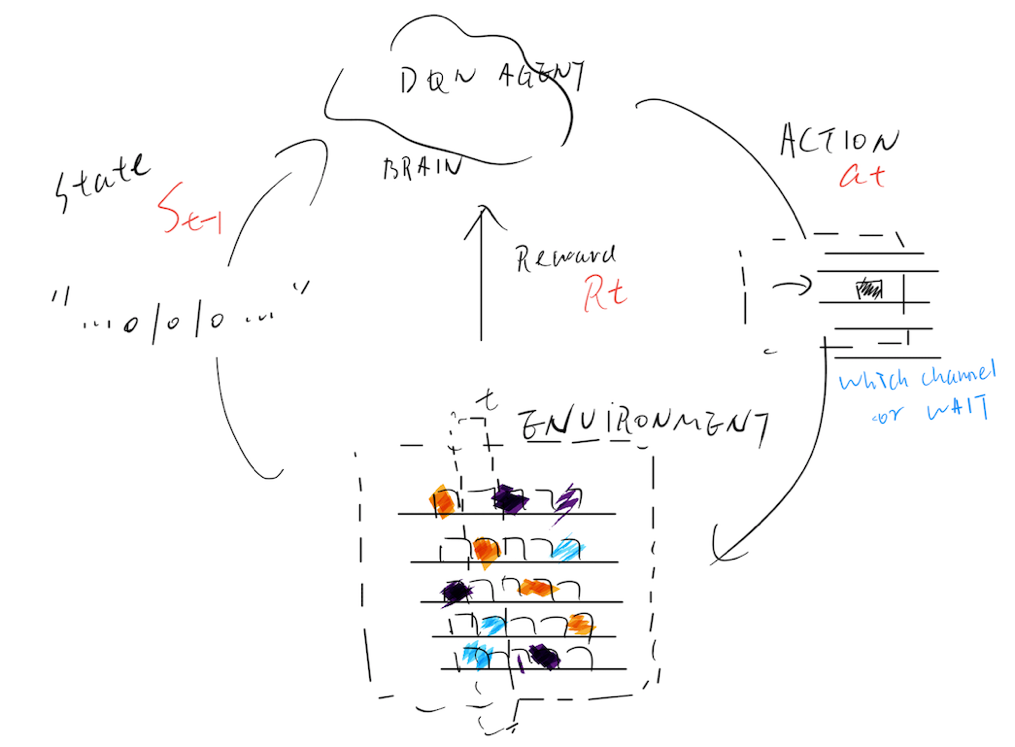 DQN AGENT
BRAIN
State
St-1
"...0/0/0..."
Reward
Rt
ACTION
at
which channel
or WAIT
t
ENVIRONMENT